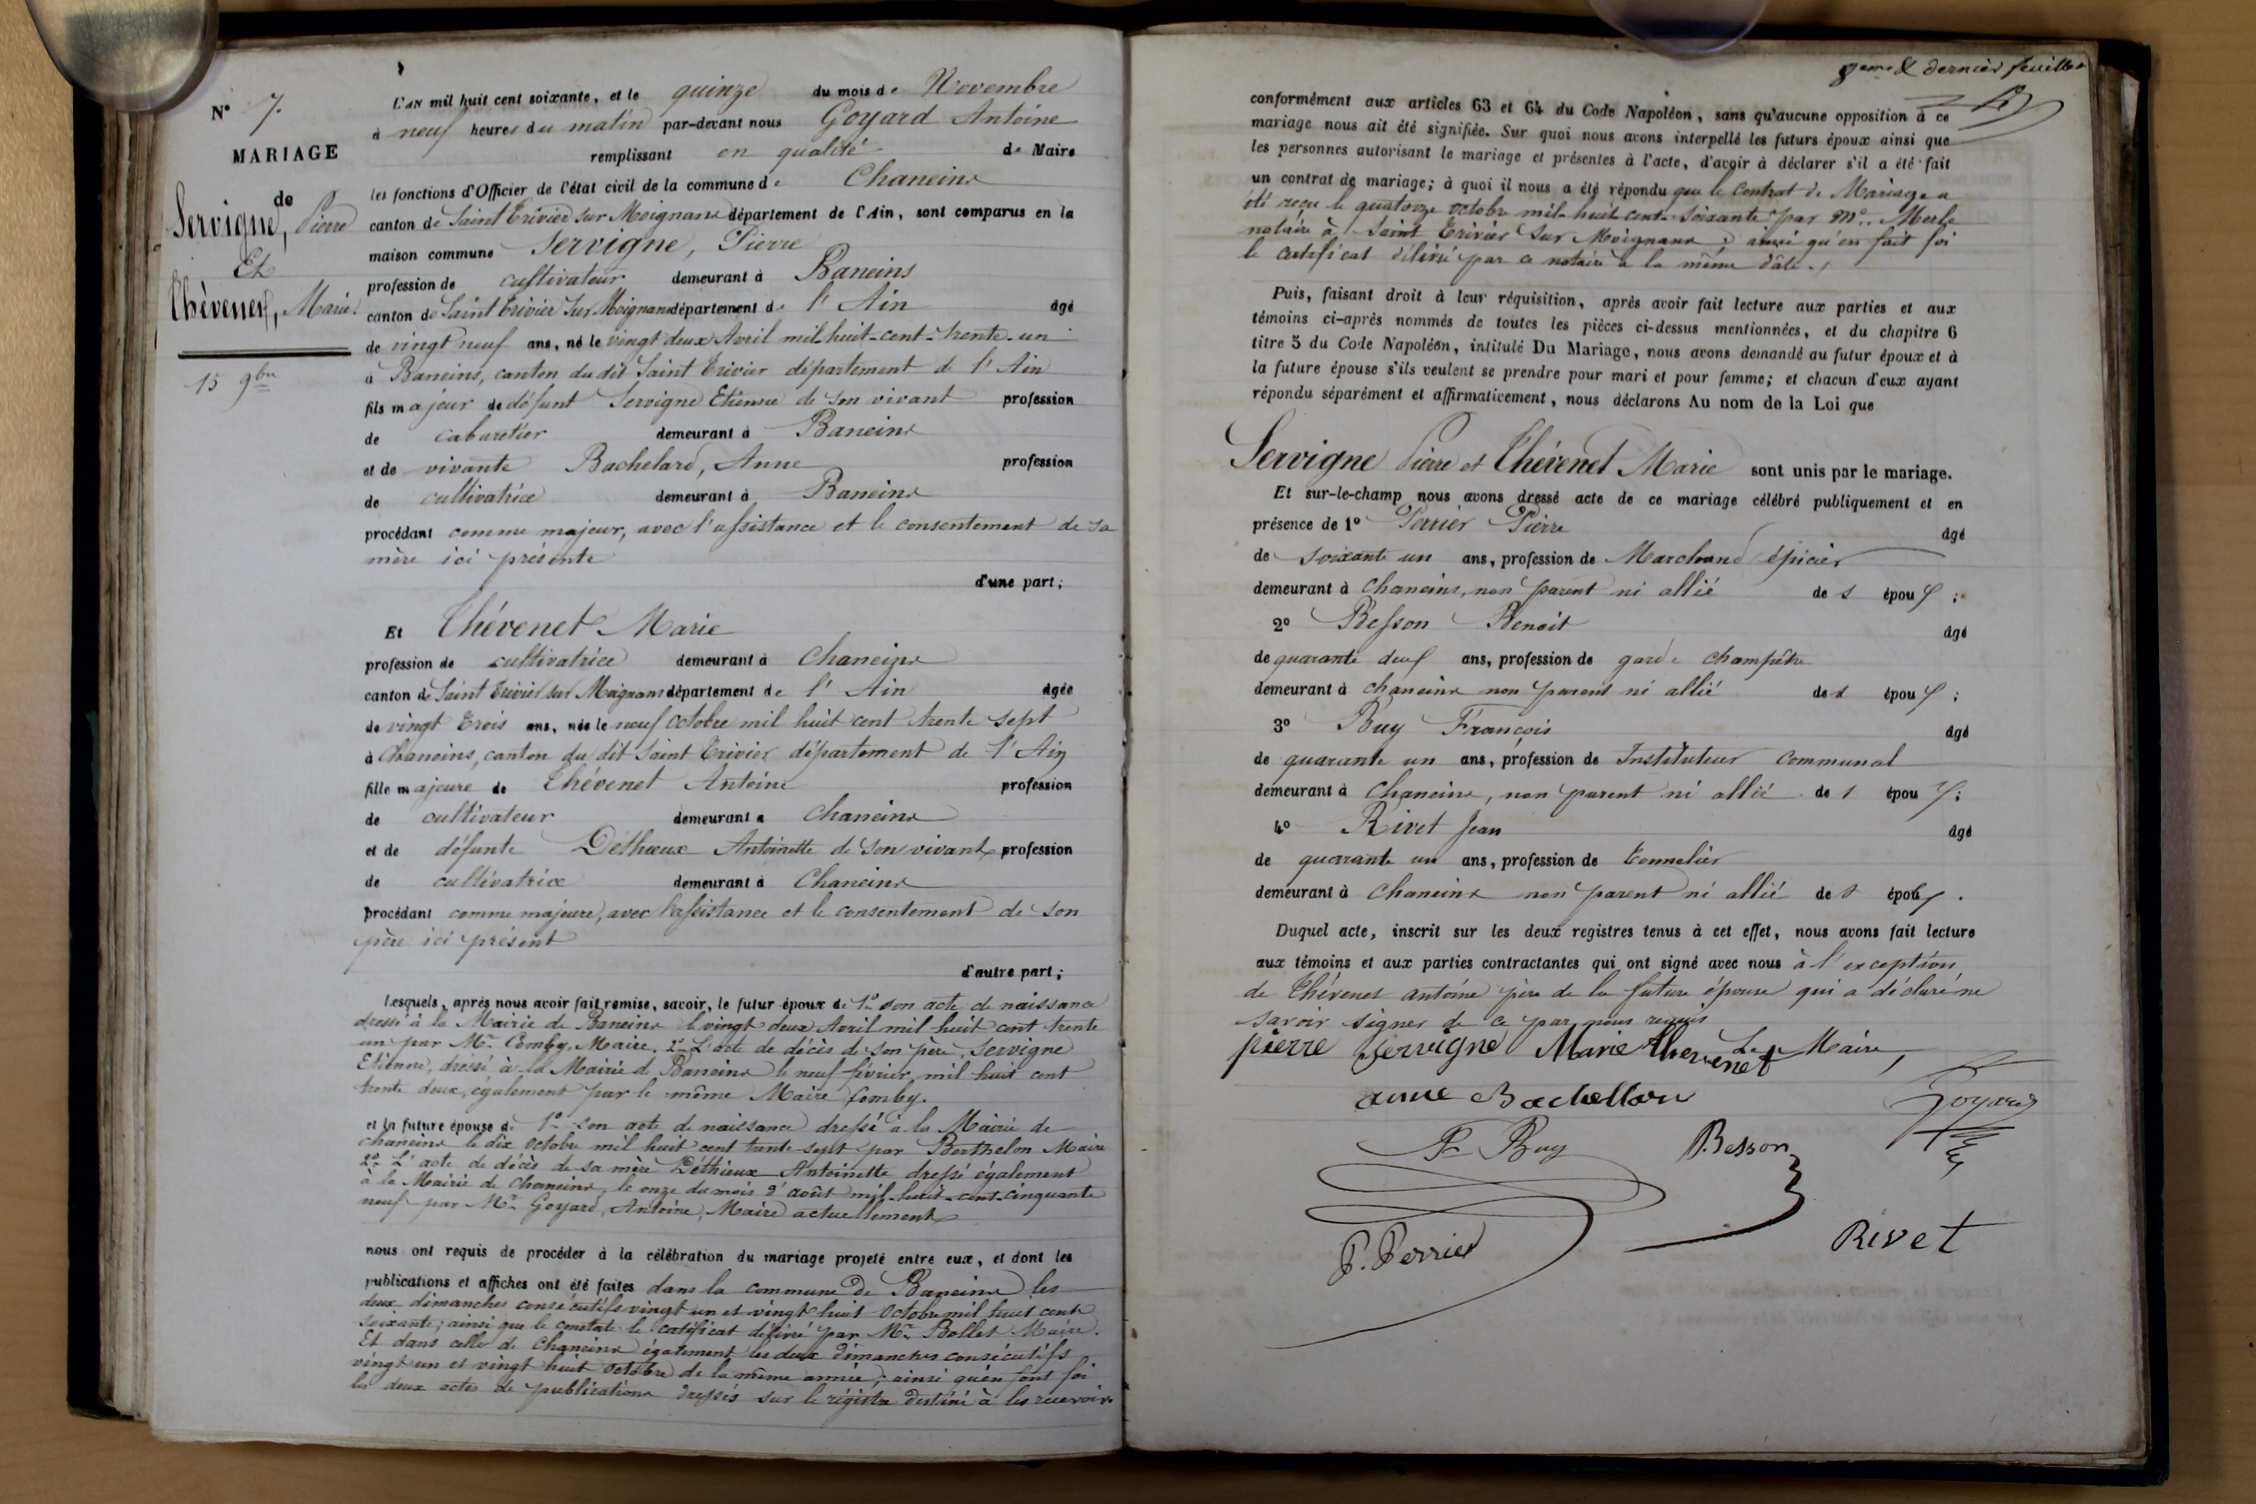 N° 7.
MARIAGE
de
Servigne, Pierre
Et
Thévenet, Marie
15 9bre
L'AN mil huit cent soixante, et le quinze du mois de Novembre
à neuf heures du matin par-devant nous Goyard Antoine
remplissant en qualité de Maire
les fonctions d'Officier de l'état civil de la commune de Chaneins
canton de Saint Trivier sur Moignans département de l'Ain, sont comparus en la
maison commune Servigne, Pierre
profession de cultivateur demeurant à Baneins
canton de Saint Trivier sur Moignans département de l'Ain âgé
de vingt neuf ans, né le vingt deux Avril mil-huit-cent-trente-un
à Baneins, canton du dit Saint Trivier département de l'Ain
fils majeur de défunt Servigne Etienne de son vivant profession
de cabaretier demeurant à Baneins
et de vivante Bachelard, Anne profession
de cultivatrice demeurant à Baneins
procédant comme majeur, avec l'assistance et le consentement de sa
mère ici présente
d'une part;
Et Thévenet Marie
profession de cultivatrice demeurant à Chaneins
canton de Saint Trivier sur Moignans département de l'Ain âgée
de vingt trois ans, née le neuf octobre mil huit cent trente sept
à Chaneins, canton du dit Saint Trivier département de l'Ain
fille majeure de Thévenet Antoine profession
de cultivateur demeurant à Chaneins
et de défunte Déthieux Antoinette de son vivant profession
de cultivatrice demeurant à Chaneins
procédant comme majeure, avec l'assistance et le consentement de son
père ici présent
d'autre part;
Lesquels, après nous avoir fait remise, savoir, le futur époux de 1° son acte de naissance
dressé à la Mairie de Baneins le vingt deux Avril mil huit cent trente
un par Mr. Comby, Maire. 2° L'acte de décès de son père, Servigne
Etienne, dressé à la Mairie de Baneins le neuf février mil huit cent
trente deux, également par le même Maire Comby.
et la future épouse de 1° son acte de naissance dressé à la Mairie de
Chaneins le dix octobre mil huit cent trente sept par Berthelon Maire
2° L'acte de décès de sa mère Déthieux Antoinette dressé également
à la Mairie de Chaneins, le onze du mois d'août mil-huit-cent-cinquante
neuf par Mr. Goyard, Antoine, Maire actuellement
nous ont requis de procéder à la célébration du mariage projeté entre eux, et dont les
publications et affiches ont été faites dans la commune de Baneins les
deux dimanches consécutifs vingt un et vingt huit Octobre mil huit cent
soixante; ainsi que le constate le certificat délivré par Mr. Bollet Maire.
Et dans celle de Chaneins également les deux dimanches consécutifs
vingt un et vingt huit octobre de la même année; ainsi qu'en font foi
les deux actes de publications dressés sur le régistre destiné à les recevoir
8eme & dernier feuillet
conformément aux articles 63 et 64 du Code Napoléon, sans qu'aucune opposition à ce
mariage nous ait été signifiée. Sur quoi nous avons interpellé les futurs époux ainsi que
les personnes autorisant le mariage et présentes à l'acte, d'avoir à déclarer s'il a été fait
un contrat de mariage; à quoi il nous a été répondu que le Contrat de Mariage a
été reçu le quatorze octobre mil-huit-cent-soixante par Me. Merle
notaire à Saint Trivier sur Moignans; ainsi qu'en fait foi
le certificat délivré par ce notaire à la même date.
Puis, faisant droit à leur réquisition, après avoir fait lecture aux parties et aux
témoins ci-après nommés de toutes les pièces ci-dessus mentionnées, et du chapitre 6
titre 5 du Code Napoléon, intitulé Du Mariage, nous avons demandé au futur époux et à
la future épouse s'ils veulent se prendre pour mari et pour femme; et chacun d'eux ayant
répondu séparément et affirmativement, nous déclarons Au nom de la Loi que
Servigne Pierre et Thévenet Marie sont unis par le mariage.
Et sur-le-champ nous avons dressé acte de ce mariage célébré publiquement et en
présence de 1° Perrier Pierre âgé
de soixante un ans, profession de Marchand épicier
demeurant à Chaneins, non parent ni allié des époux;
2° Besson Benoit âgé
de quarante deux ans, profession de garde champêtre
demeurant à Chaneins non parent ni allié des époux;
3° Buy François âgé
de quarante un ans, profession de Instituteur communal
demeurant à Chaneins, non parent ni allié des époux;
4° Rivet Jean âgé
de quarante un ans, profession de tonnelier
demeurant à Chaneins non parent ni allié des époux.
Duquel acte, inscrit sur les deux registres tenus à cet effet, nous avons fait lecture
aux témoins et aux parties contractantes qui ont signé avec nous à l'exception
de Thévenet antoine père de la future épouse qui a déclaré ne
savoir signer de ce par nous requis
pierre Servigne Marie thevenet Le Maire,
anne Bachellard Goyard
F. Buy B. Besson
P. Perrier Rivet